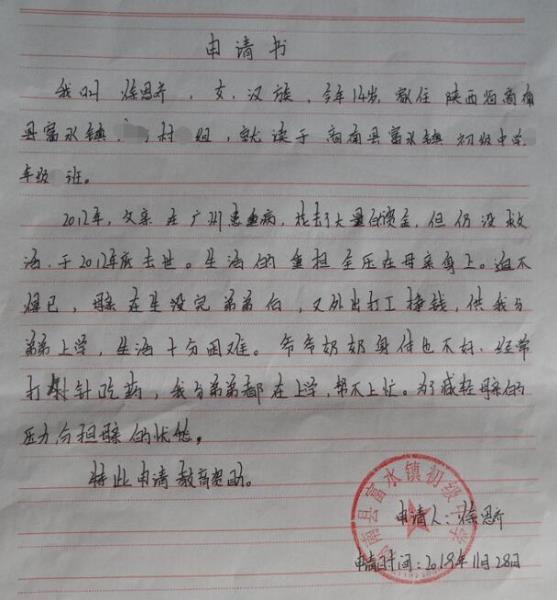 申请书
我叫徐恩乔，女，汉族，今年14岁，家住陕西省商南
县富水镇 村 组，就读于商南县富水镇初级中学
年级 班。
2012年，父亲在广州患重病，找了大量的资金，但仍没救
活，于2012年底去世。生活的重担全压在母亲身上。迫不
得已，母亲在生没完弟弟后，又外出打工挣钱，供我与
弟弟上学，生活十分困难。爷爷奶奶身体也不好，经常
打针吃药，我与弟弟都在上学，帮不上忙。为了减轻母亲的
压力分担母亲的忧愁。
特此申请教育资助。
申请人：徐恩乔
申请时间：2019年11月28日
商南县富水镇初级中学